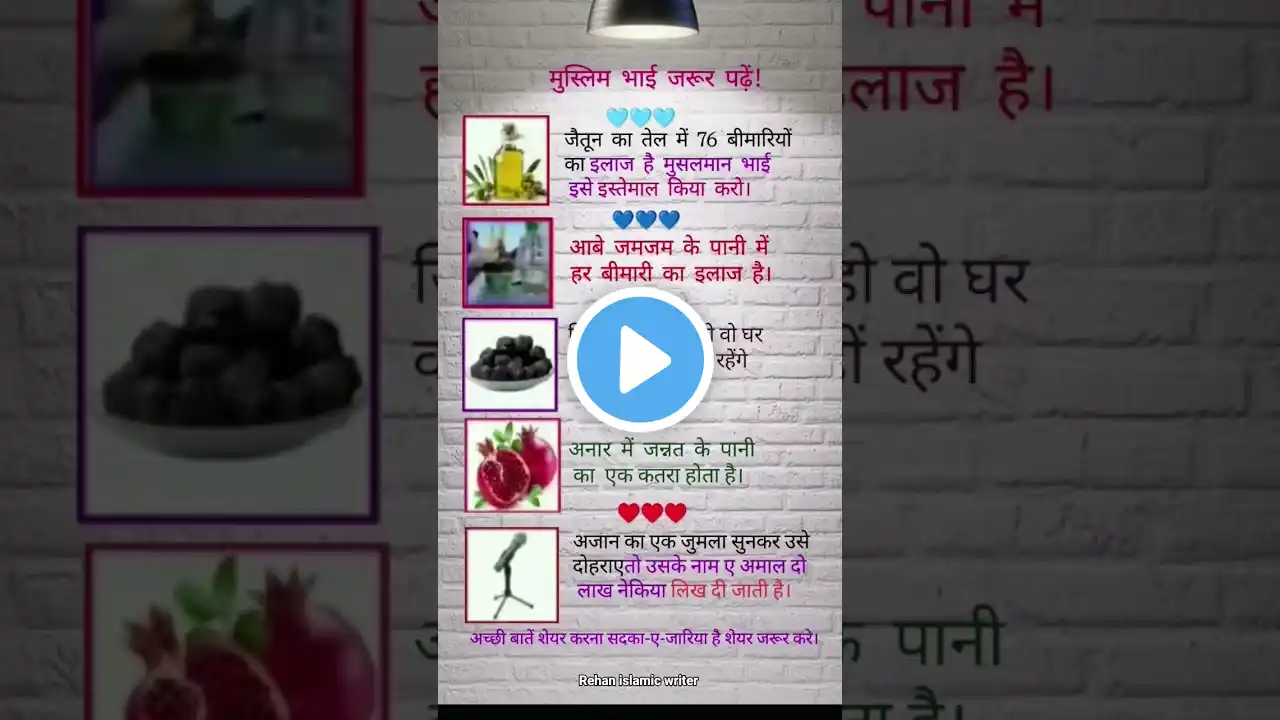 मुस्लिम भाई जरूर पढ़ें!
जैतून का तेल में 76 बीमारियों
का इलाज है मुसलमान भाई
इसे इस्तेमाल किया करो।
आबे जमजम के पानी में
हर बीमारी का इलाज है।
वो घर
रहेंगे
अनार में जन्नत के पानी
का एक कतरा होता है।
अजान का एक जुमला सुनकर उसे
दोहराएतो उसके नाम ए अमाल दो
लाख नेकिया लिख दी जाती है।
अच्छी बातें शेयर करना सदका-ए-जारिया है शेयर जरूर करे।
Rehan islamic writer
पानी में
लाज है।
वो घर
रहेंगे
पानी